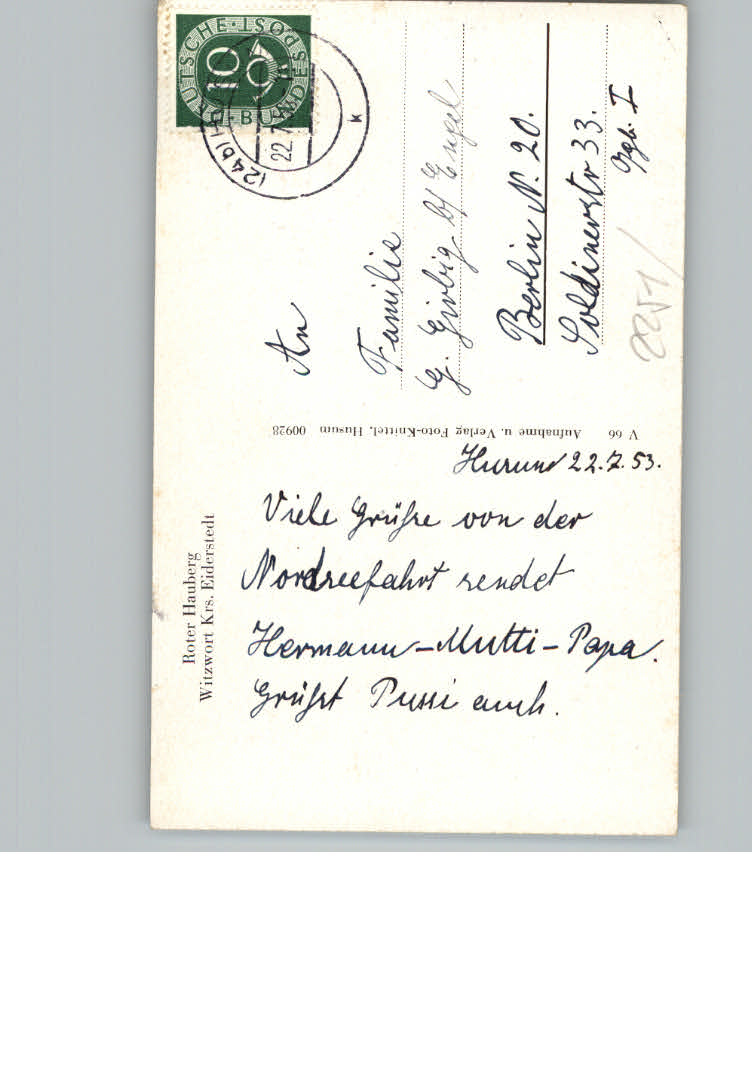 Roter Hauberg
Witzwort Krs. Eiderstedt
Husum 22.7.53.
Viele Grüße von der
Nordseefahrt sendet
Hermann – Mutti – Papa.
Grüßt Pussi auch.
V 66 Aufnahme u. Verlag Foto-Knittel, Husum 00928
An
Familie
G. Girbig b/ Engel
Berlin N. 20.
Soldinerstr 33.
I
DEUTSCHE BUNDESPOST
10
(24b) HUSUM
22.7.